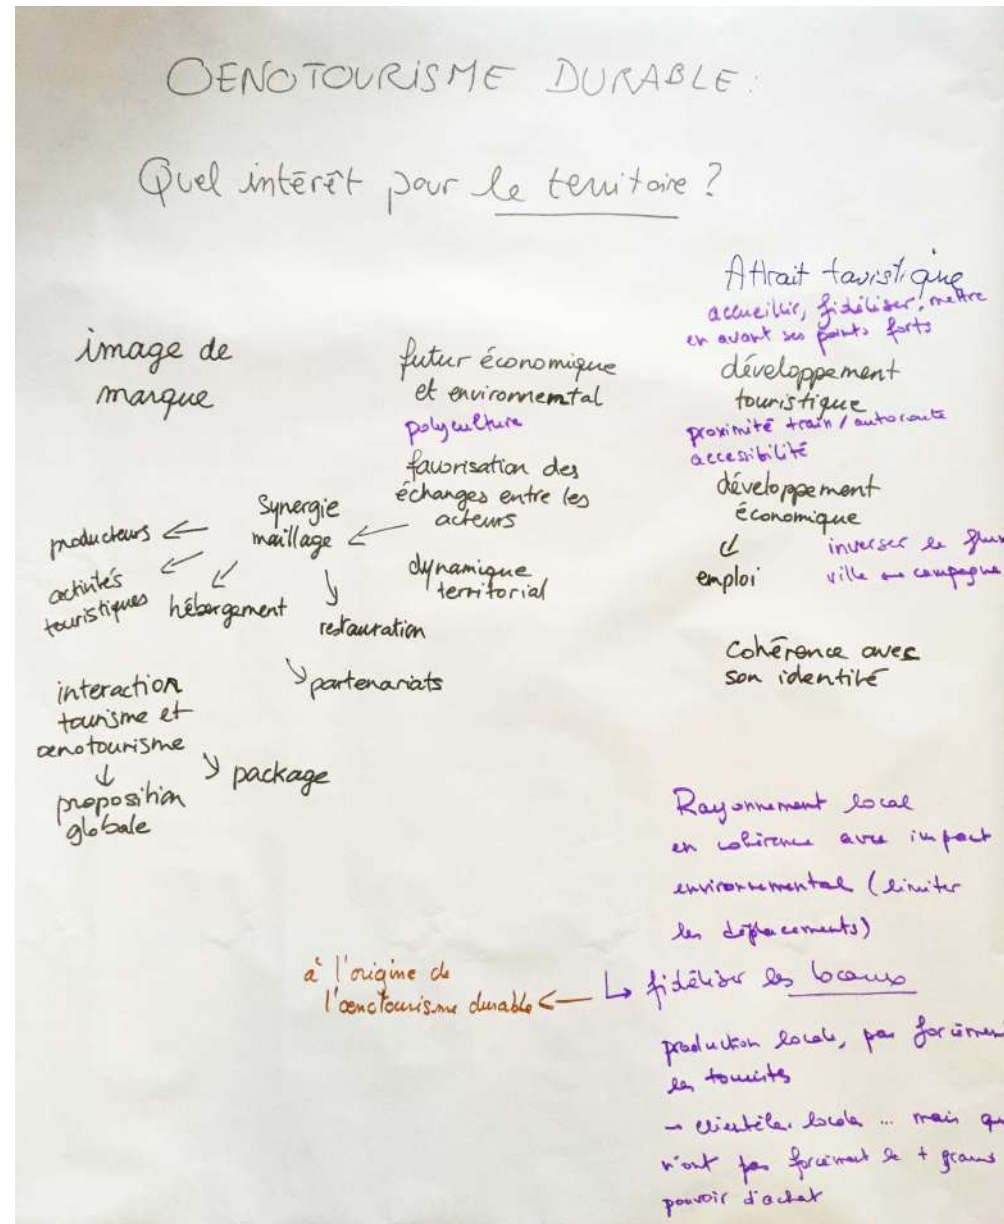 OENOTOURISME DURABLE:
Quel intérêt pour le territoire ?
image de
marque
futur économique
et environnemental
polyculture
favorisation des
échanges entre les
acteurs
Synergie
maillage
producteurs
activités
touristiques
hébergement
restauration
partenariats
dynamique
territorial
interaction
tourisme et
œnotourisme
package
proposition
globale
Attrait touristique
accueillir, fidéliser, mettre
en avant ses points forts
développement
touristique
proximité train / autoroute
accessibilité
développement
économique
emploi
inverser le flux
ville campagne
Cohérence avec
son identité
Rayonnement local
en cohérence avec impact
environnemental (limiter
les déplacements)
↳ fidéliser les locaux
à l'origine de
l'œnotourisme durable ←
production locale, pas forcémen
les touristes
→ clientèle locale ... mais qu
n'ont pas forcément le + grand
pouvoir d'achat